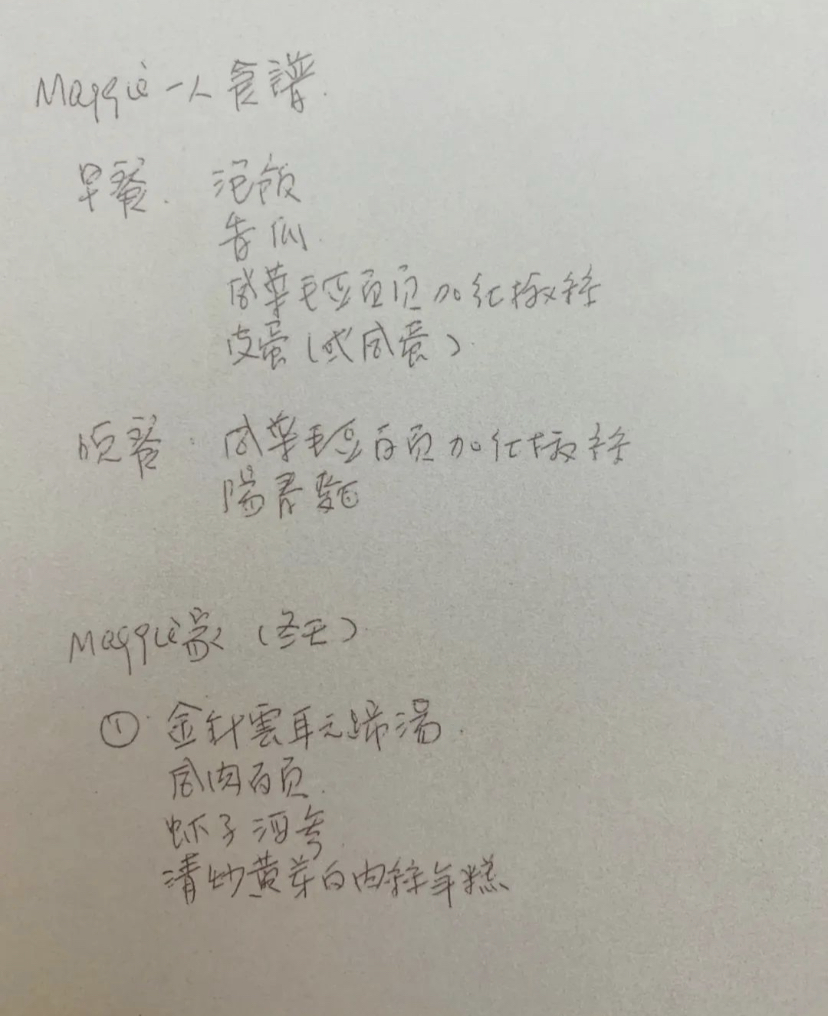 Maggie一人食譜.
早餐. 泡飯
瓜.
咸菜毛豆百页加红椒絲
皮蛋(或咸蛋)
晚餐: 咸菜毛豆百页加红椒絲
陽春麵
Maggie家 (冬天)
① 金針雲耳元蹄湯.
咸肉百页.
虾子海参
清炒黄芽白肉絲年糕